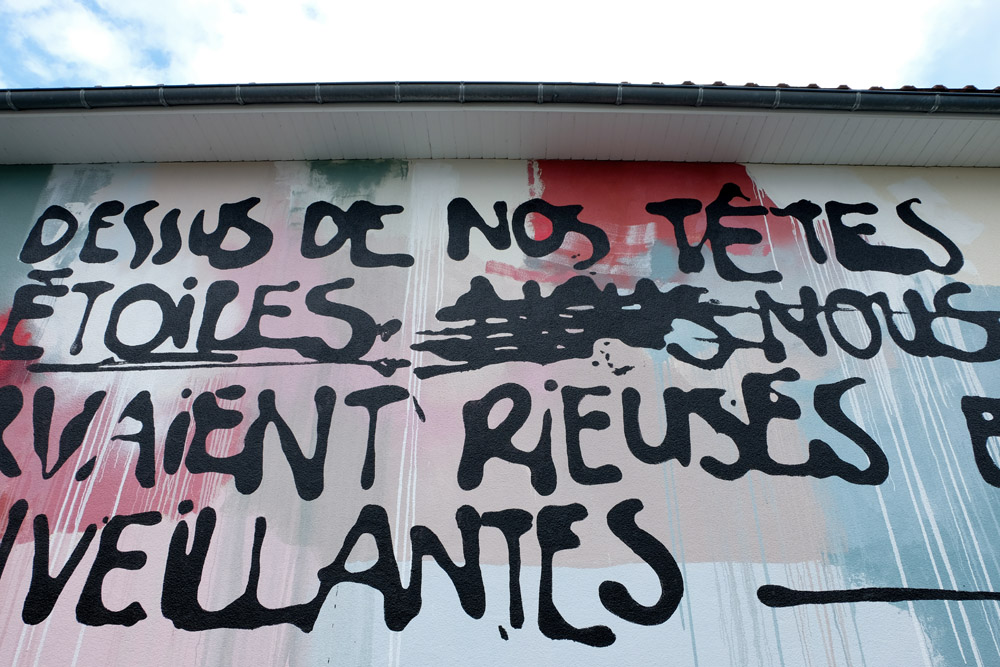 DESSUS DE NOS TÊTES
ÉTOILES NOUS
RVAIENT RIEUSES
VEILLANTES